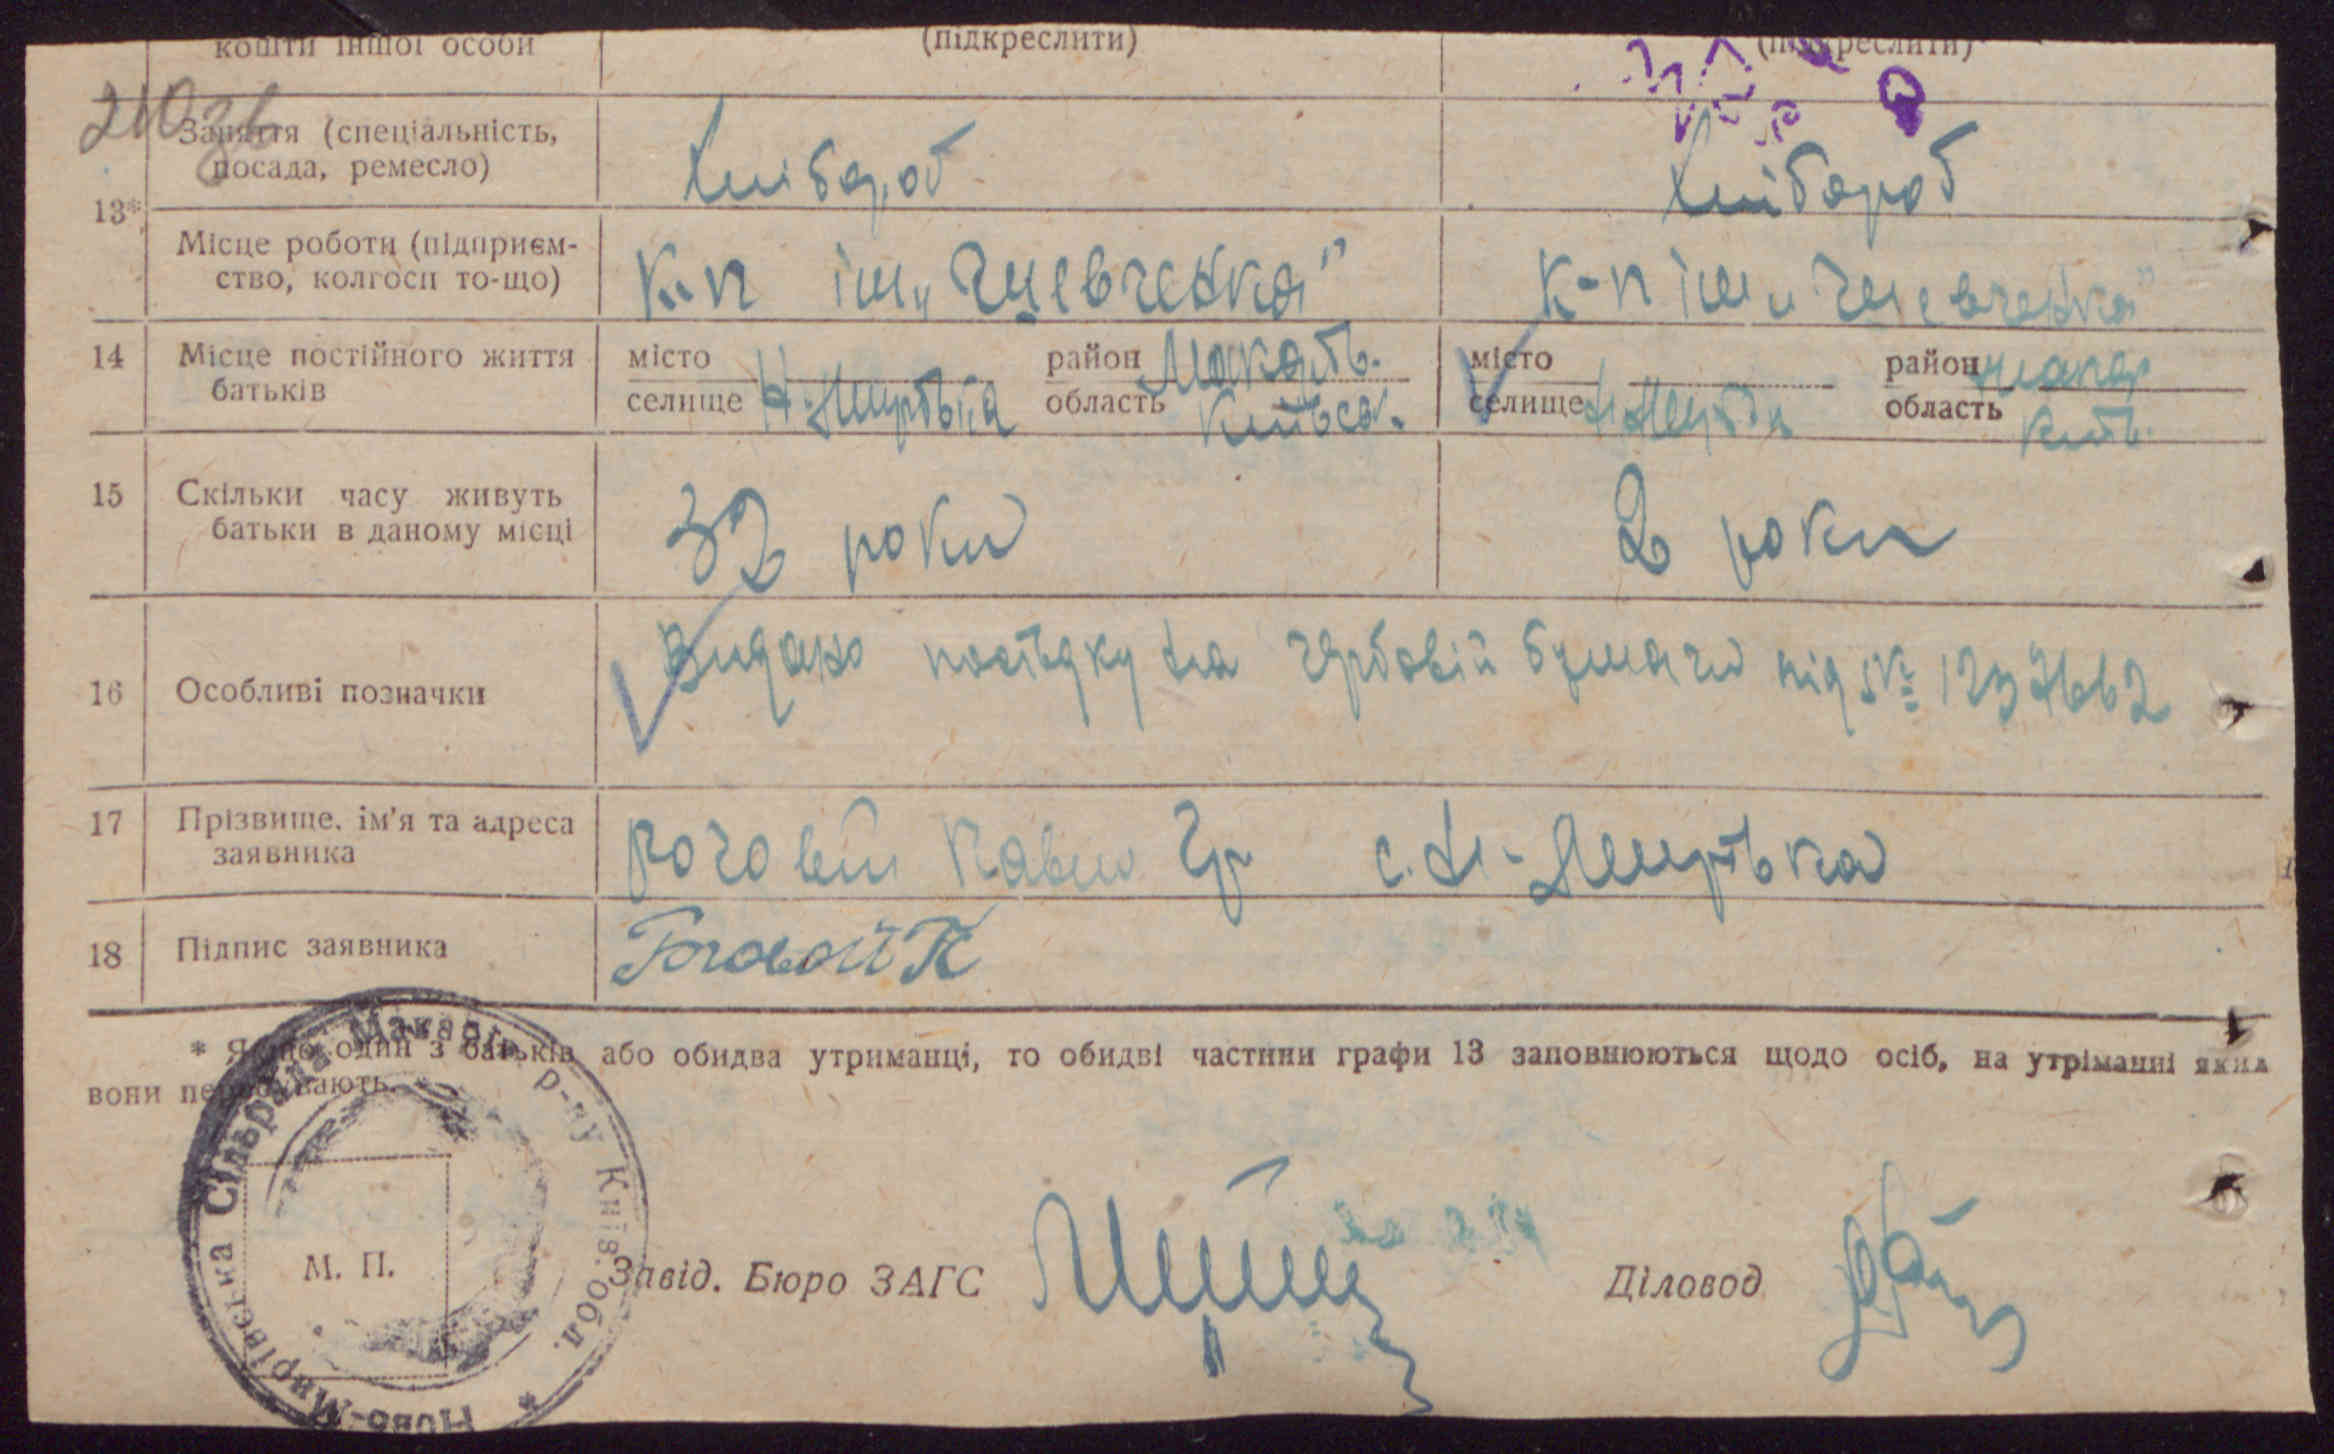 кошти іншої особи (підкреслити) (підкреслити)
210зв
Заняття (спеціальність, посада, ремесло) Хлібороб Хлібороб
13*
Місце роботи (підприєм-
ство, колгосп то-що) к-п ім „Шевченка" к-п ім „Шевченка"
14 Місце постійного життя батьків місто район Макарів. місто район Макар
селище Н.Мирівка область Київськ. селище область Київ.
15 Скільки часу живуть
батьки в даному місці 32 роки 2 роки
16 Особливі позначки Видано посвідку на гербовій бумаги під № 1237662
17 Прізвище, ім'я та адреса
заявника Роговий Павло Гр с. Н-Мирівка
18 Підпис заявника Роговой П
* Якщо один з батьків або обидва утриманці, то обидві частини графи 13 заповнюються щодо осіб, на утріманні яких
вони перебувають.
Ново-Мирівська Сільрада Макарів. р-ну Київ. обл. *
М. П. Завід. Бюро ЗАГС Діловод